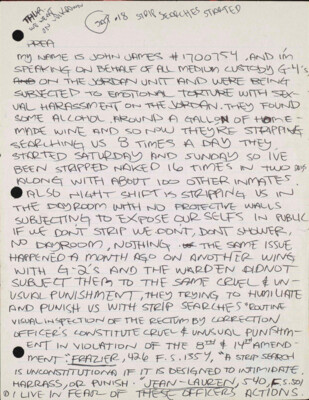 THUR
WE WENT
ON LOCKDOWN
STRIP SEARCHES STARTED
PREA
MY NAME IS JOHN JAMES # 1700754. AND I'M
SPEAKING ON BEHALF OF ALL MEDIUM CUSTODY G-4's
ON THE JORDAN UNIT AND WERE BEING
SUBJECTED TO EMOTIONAL TORTURE WITH SEX-
UAL HARASSMENT ON THE JORDAN. THEY FOUND
SOME ALCOHOL AROUND A GALLON OF HOME-
MADE WINE AND SO NOW THEY'RE STRIPPING
SEARCHING US 8 TIMES A DAY THEY
STARTED SATURDAY AND SUNDAY SO IVE
BEEN STRIPPED NAKED 16 TIMES IN TWO DAYS
ALONG WITH ABOUT 100 OTHER INMATES.
ALSO NIGHT SHIFT IS STRIPPING US IN
THE DAYROOM WITH NO PROTECTIVE WALLS
SUBJECTING TO EXPOSE OUR SELFS IN PUBLIC
IF WE DON'T STRIP WE DONT, DON'T SHOWER,
NO DAYROOM, NOTHING. THE SAME ISSUE
HAPPENED A MONTH AGO ON ANOTHER WING
WITH G-2's AND THE WARDEN DID NOT
SUBJECT THEM TO THE SAME CRUEL & UN-
USUAL PUNISHMENT, THEY TRYING TO HUMILIATE
AND PUNISH US WITH STRIP SEARCHES "ROUTINE
VISUAL INSPECTION OF THE RECTUM BY CORRECTION
OFFICER'S CONSTITUTE CRUEL & UNUSUAL PUNISHM-
ENT IN VIOLATION OF THE 8TH & 14TH AMEND-
MENT" FRAZIER, 426 F.S. 1354, "A STRIP SEARCH
IS UNCONSTITUTIONAL IF IT IS DESIGNED TO INTIMIDATE
HARRASS, OR PUNISH. JEAN-LAUREN, 540, F.S. 501
I LIVE IN FEAR OF THESE OFFICERS ACTIONS.